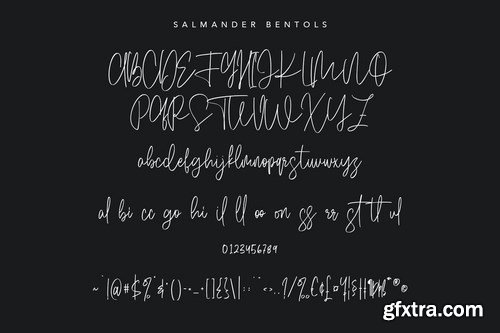 SALMANDER BENTOLS
ABCDEFGHIJKLMNO
PQRSTUVWXYZ
abcdefghijklmnopqrstuvwxyz
al bi cc go hi il ll oo on ss rr st tt ul
0123456789
gfxtra.com